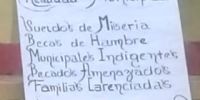 Sueldos de Miseria
Becas de Hambre
Municipales Indigentes
Pecados Amenazados
Familias Carenciadas